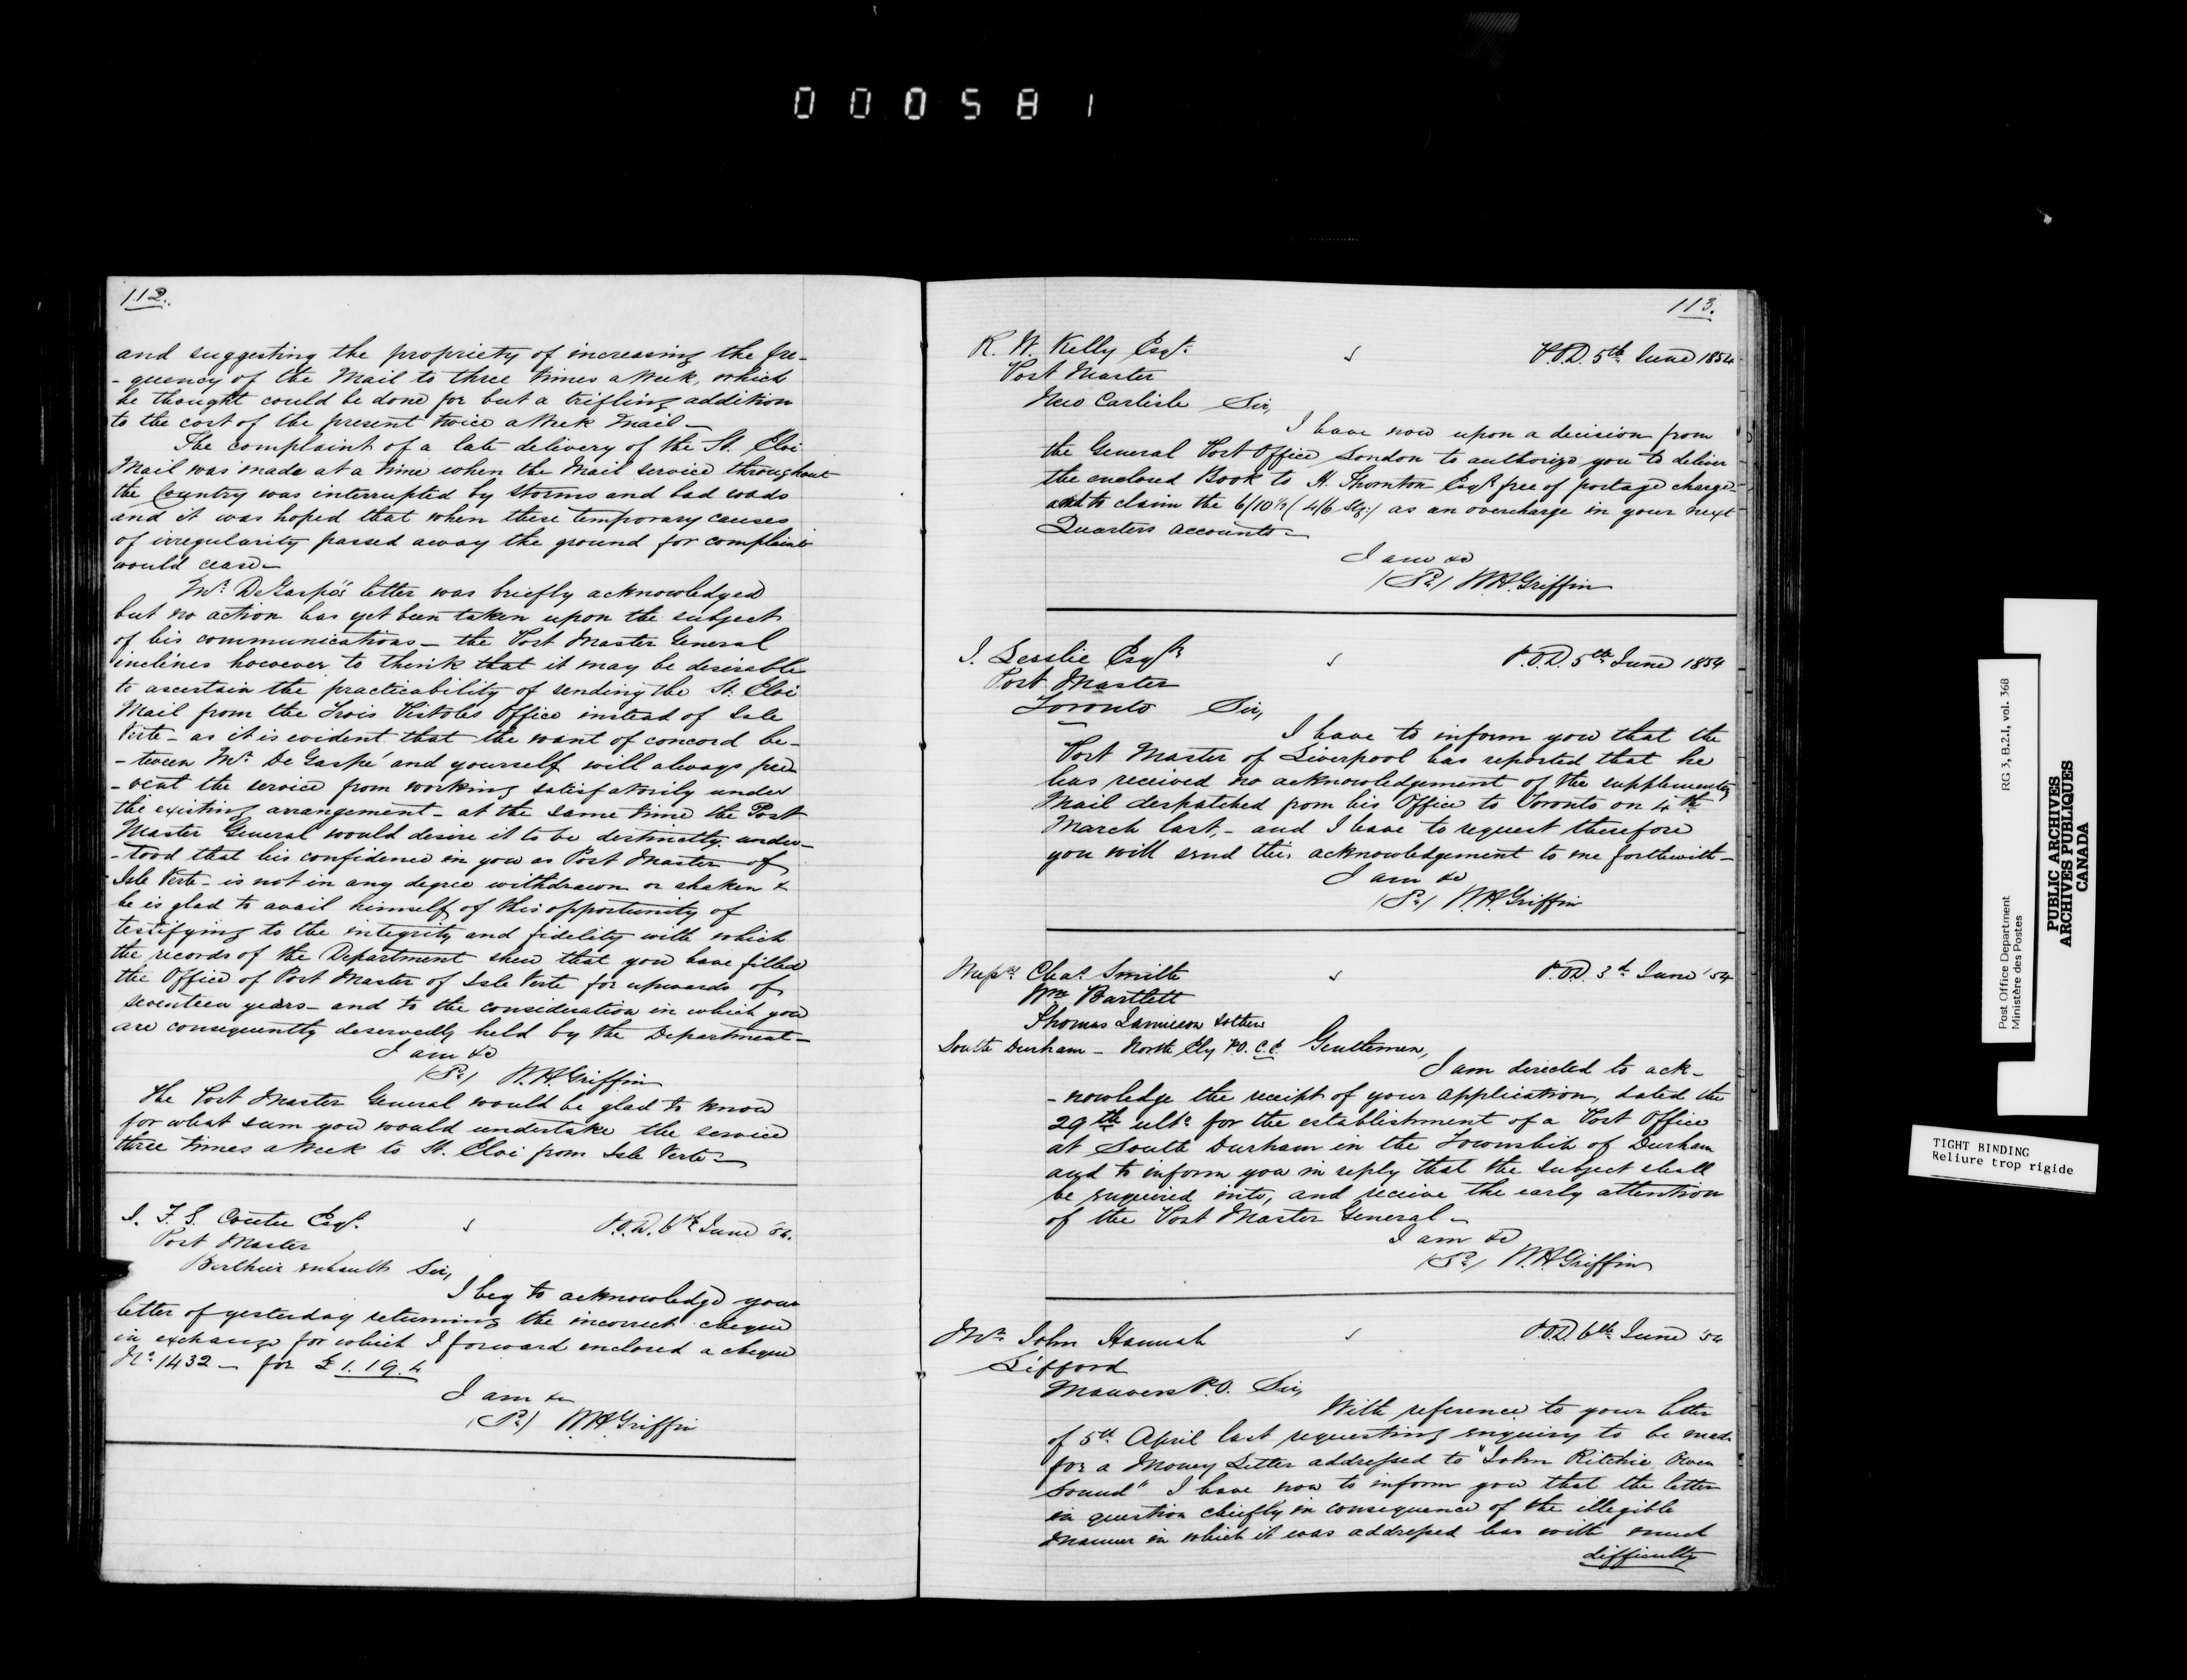 000581
112.
and suggesting the propriety of increasing the fre-
-quency of the Mail to three times a Week, which
he thought could be done for but a trifling addition
to the cost of the present twice a Week Mail—
The complaint of a late delivery of the St. Eloi
Mail was made at a time when the Mail service throughout
the Country was interrupted by storms and bad roads
and it was hoped that when these temporary causes
of irregularity passed away the ground for complaint
would cease—
Mr. DeGaspé's letter was briefly acknowledged
but no action has yet been taken upon the subject
of his communications— the Post Master General
inclines however to think that it may be desirable
to ascertain the practicability of sending the St. Eloi
Mail from the Trois Pistoles Office instead of Isle
Verte— as it is evident that the want of concord be-
-tween Mr. De Gaspé and yourself will always pre
-vent the service from working satisfactorily under
the existing arrangement— at the same time the Post
Master General would desire it to be distinctly under-
-stood that his confidence in you as Post Master of
Isle Verte— is not in any degree withdrawn or shaken &
he is glad to avail himself of this opportunity of
testifying to the integrity and fidelity with which
the records of the Department shew that you have filled
the Office of Post Master of Isle Verte for upwards of
seventeen years— and to the consideration in which you
are consequently deservedly held by the Department—
I am &c
W.H. Griffin
The Post Master General would be glad to know
for what sum you would undertake the service
three times a Week to St. Eloi from Isle Verte—
P.O.D. 6th June 54.
Post Master
Berthier Sir,
I beg to acknowledge your
letter of yesterday returning the incorrect cheque
in exchange for which I forward enclosed a cheque
No. 1432— for £1.19.4
I am &c
W.H. Griffin
113.
R. W. Kelly Esqr. P.O.D. 5th June 1854
Post Master
New Carlisle Sir,
I have now upon a decision from
the General Post Office London to authorize you to deliver
the enclosed Book to H. Thornton Esqr. free of postage charge—
and to claim the 6/10½ (4/6 Stg:) as an overcharge in your next
Quarters accounts—
I am &c
W.H. Griffin
J. Lesslie Esqr. P.O.D. 5th June 1854
Post Master
Toronto Sir,
I have to inform you that the
Post Master of Liverpool has reported that he
has received no acknowledgement of the supplementary
Mail despatched from his Office to Toronto on 4th
March last,— and I have to request therefore
you will send this acknowledgement to me forthwith—
I am &c
W.H. Griffin
Messrs Chas. Smith P.O.D. 3d June '54
Wm Bartlett
Thomas Jamieson & others
South Durham— North Ely P.O. C.E. Gentlemen,
I am directed to ack-
-nowledge the receipt of your application, dated the
29th ulto. for the establishment of a Post Office
at South Durham in the Township of Durham
and to inform you in reply that the subject shall
be enquired into, and receive the early attention
of the Post Master General—
I am &c
W.H. Griffin
Mr. John Hannah P.O.D. 6th June 54
Lifford
Manvers P.O. Sir,
With reference to your letter
of 5th April last requesting enquiry to be made
for a Money Letter addressed to "John Ritchie Owen
Sound" I have now to inform you that the letter
in question chiefly in consequence of the illegible
manner in which it was addressed has with much
difficulty
Post Office Department
Ministère des Postes
RG 3, B.2.I, vol. 368
PUBLIC ARCHIVES
ARCHIVES PUBLIQUES
CANADA
TIGHT BINDING
Reliure trop rigide